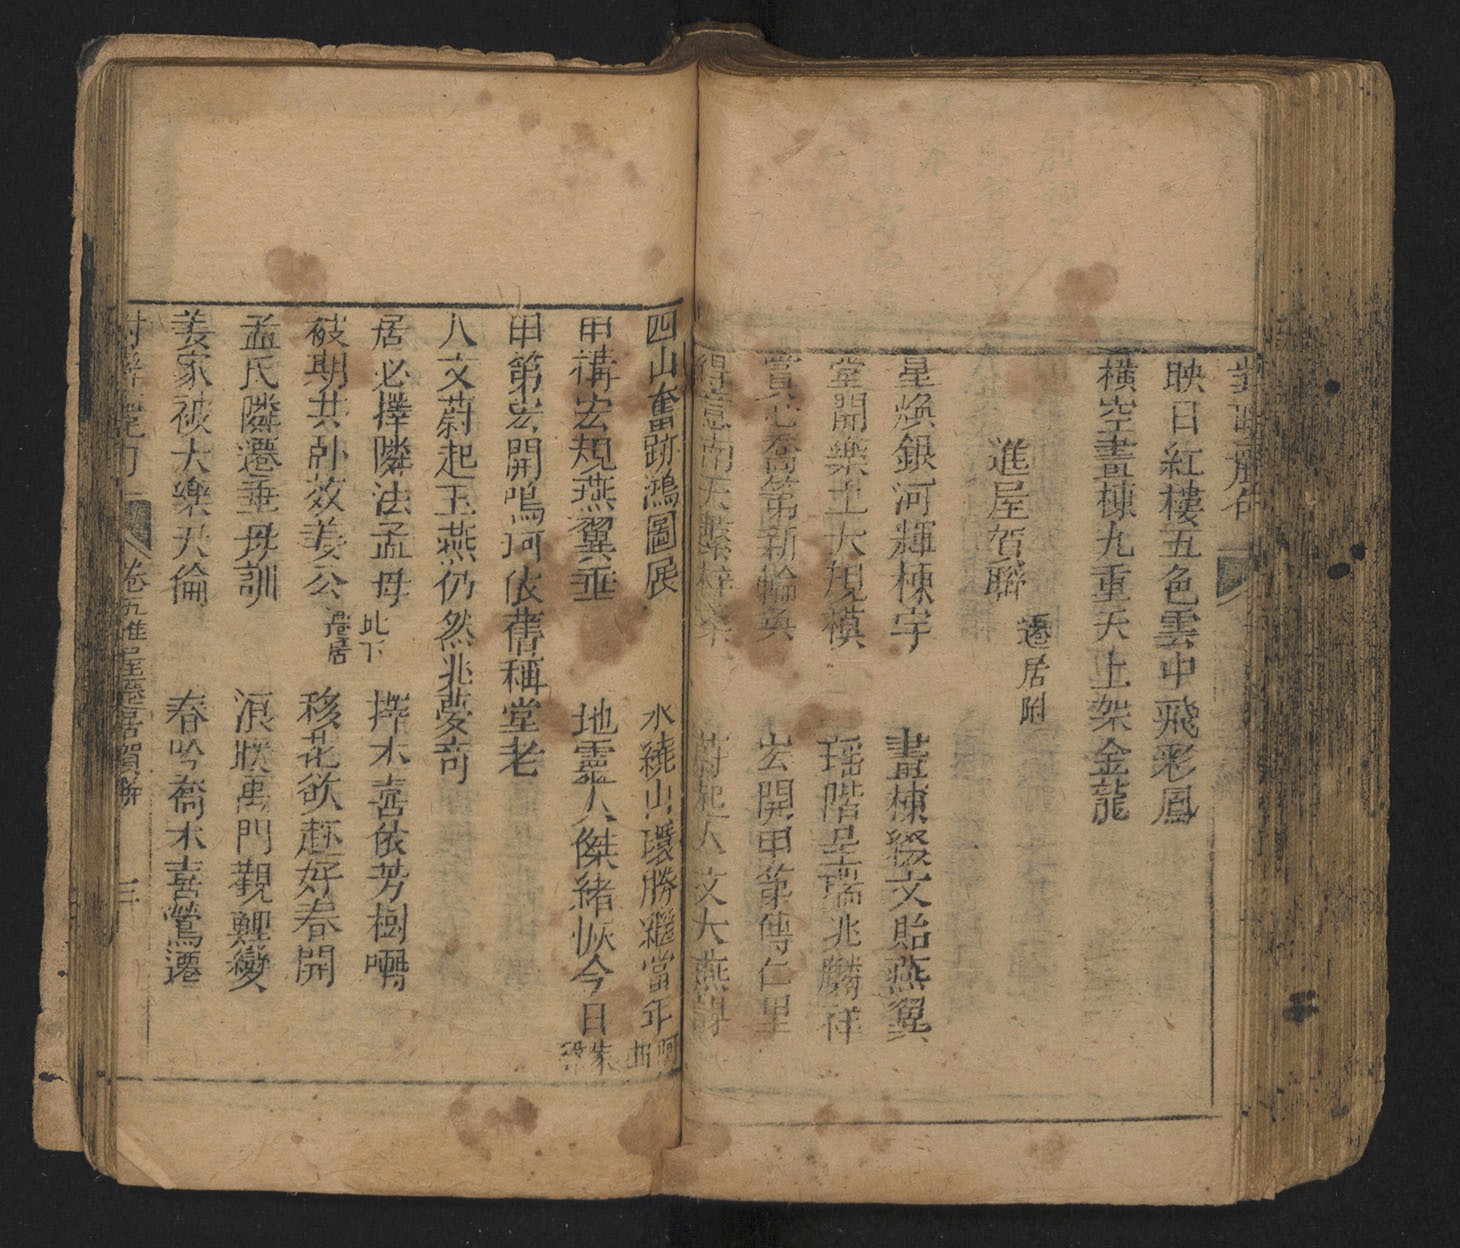 映日紅樓五色雲中飛彩鳳
橫空畫棟九重天上架金龍
進屋賀聯 遷居附
星煥銀河輝棟宇 畫棟綴文貽燕翼
堂開樂土大規模 瑶階呈瑞兆麟祥
喬第新輪奐 宏開甲第傳仁里
得意南天 蔚起人文大燕謀
四山奮跡鴻圖展 水繞山環勝繼當年
甲構宏規燕翼垂 地靈人傑緒恢今日
甲第宏開鳴珂依舊稱堂老
人文蔚起玉燕仍然兆夢奇
居必擇隣法孟母 此下遷居 擇木喜依芳樹囀
被期共卧效姜公 移花欲趂好春開
孟氏隣遷垂母訓 浪躍禹門觀鯉變
姜家被大樂天倫 春吟喬木喜鶯遷
卷五進屋遷居賀聯 三